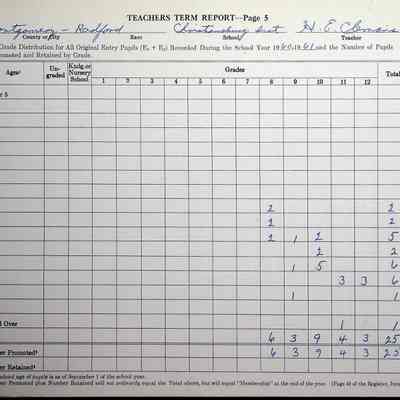 TEACHERS TERM REPORT—Page 5
Montgomery - Radford Christiansburg Inst H. E. Clemons
County or City Race School Teacher
Grade Distribution for All Original Entry Pupils (E₁ + E₂) Recorded During the School Year 1960-1961 and the Number of Pupils
Promoted and Retained by Grade.
Ages¹ Un-graded Kndg. or Nursery School Grades Total
1 2 3 4 5 6 7 8 9 10 11 12
r 5
2 2
1
1 1 5
2
1 5 6
3 3 6
1 1
d Over 1 1
6 3 9 4 3 25
er Promoted² 6 3 9 4 3 25
er Retained²
school age of pupils is as of September 1 of the school year.
er Promoted plus Number Retained will not ordinarily equal the Total above, but will equal "Membership" at the end of the year.